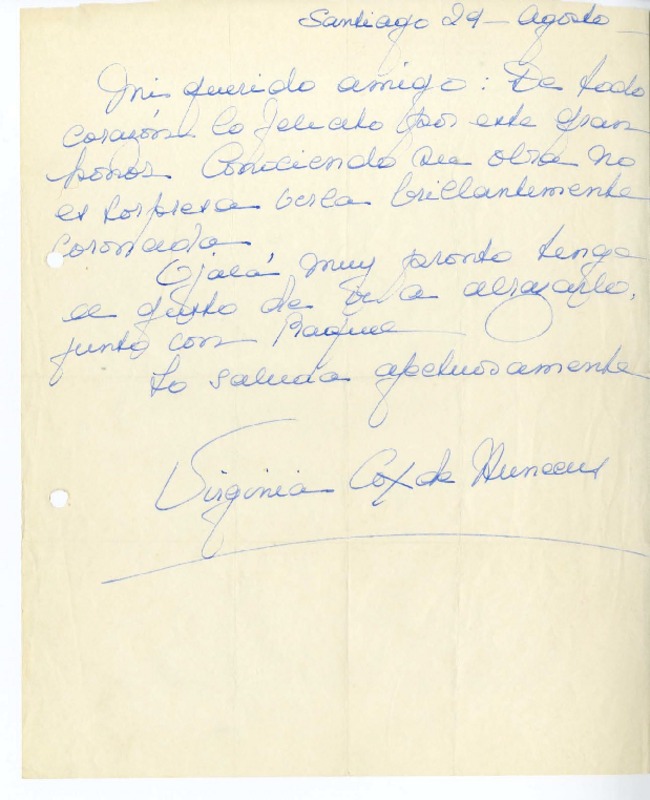 Santiago 29 - Agosto -
Mi querido amigo: De todo
corazón lo felicito por este gran
honor. Conociendo su obra no
es sorpresa verla brillantemente
coronada
Ojalá muy pronto tenga
el gusto de ir a abrazarlo,
junto con Raquel
Lo saluda afectuosamente
Virginia Cox de Huneeus